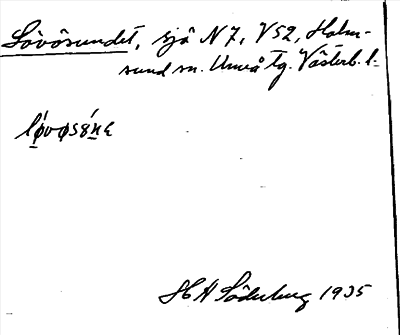 Lövösundet, sjö N 7, V 52, Holm-
sund sn. Umeå tg. Västerb. l.
lǿvøsǿnε
H H Söderberg 1935